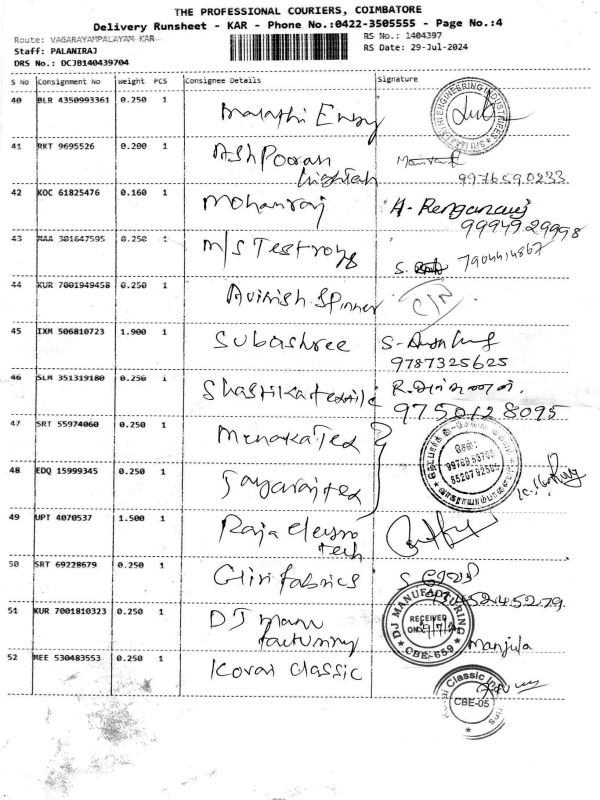 THE PROFESSIONAL COURIERS, COIMBATORE
Delivery Runsheet - KAR - Phone No.:0422-3505555 - Page No.:4
Route: VAGARAYAMPALAYAM KAR
RS No.: 1404397
Staff: PALANIRAJ
RS Date: 29-Jul-2024
DRS No.: DCJB140439704
S No Consignment No weight PCS Consignee Details Signature
40 BLR 4350993361 0.250 1 Malathi Engg
41 RKT 9695526 0.200 1 Ash Pooran
9976590233
42 KOC 61825476 0.160 1 Mohanraj A. Renganayaj
9994929998
43 MAA 301647595 0.250 1 M/S Testrong S.
7904414867
44 KUR 7001949458 0.250 1 Avinish Spinner C/N
45 IXM 506810723 1.900 1 Subashree S-
9787325625
46 SLM 351319180 0.250 1 Shastika textile R.
9750128095
47 SRT 55974060 0.250 1 Menaka Tex
48 EDQ 15999345 0.250 1 Jayaraj tex
49 UPT 4070537 1.500 1 Raja electro
tech
50 SRT 69228679 0.250 1 Giri fabrics S.
51 KUR 7001810323 0.250 1 DJ manu
facturing
DJ MANUFACTURING
RECEIVED
ON
CBE-659
Manjula
52 MEE 530483553 0.250 1 Kovai classic
Classic
CBE-05